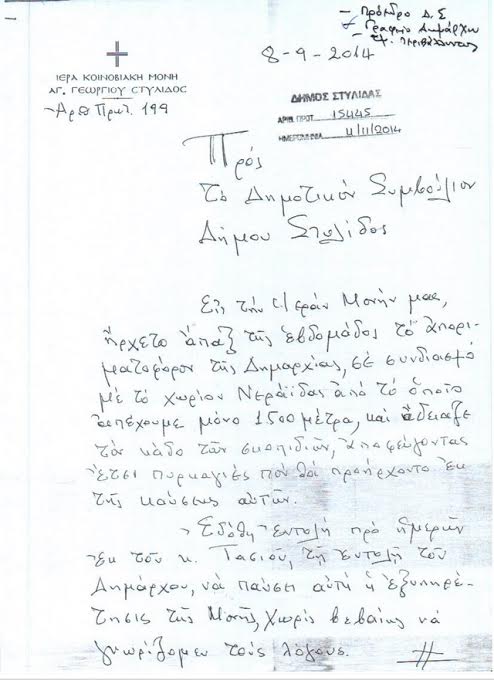 - Πρόεδρο Δ.Σ
- Γραφείο Δημάρχου
- Τμ. Περιβάλλοντος
8-9-2014
ΙΕΡΑ ΚΟΙΝΟΒΙΑΚΗ ΜΟΝΗ
ΑΓ. ΓΕΩΡΓΙΟΥ ΣΤΥΛΙΔΟΣ
Αρθ Πρωτ. 199
ΔΗΜΟΣ ΣΤΥΛΙΔΑΣ
ΑΡΙΘ. ΠΡΩΤ. 15445
ΗΜΕΡΟΜΗΝΙΑ 11/11/2014
Πρός
τὸ Δημοτικὸν Συμβούλιον
Δήμου Στυλίδος
Εἰς τὴν Ἱερὰν Μονήν μας,
ἤρχετο ἅπαξ τῆς ἑβδομάδος τὸ ἀπορι-
ματοφόρον τῆς Δημαρχίας, σὲ συνδιασμό
μὲ τὸ χωρίον Νεράϊδας ἀπὸ τὸ ὁποῖο
ἀπέχουμε μόνο 1500 μέτρα, καὶ ἄδειαζε
τὸν κάδο τῶν σκοπιδιῶν, ἀποφεύγοντας
ἔτσι πυρκαγιές ποὺ θὰ προήρχοντο ἐκ
τῆς καύσεως αὐτῶν.
Ἐδόθη ἐντολή πρὸ ἡμερῶν
ἐκ τοῦ κ. Τασιοῦ, τῇ ἐντολῇ τοῦ
Δημάρχου, νὰ παύσει αὐτή ἡ ἐξυπηρέ-
τησις τῆς Μονῆς, χωρίς βεβαίως νὰ
γνωρίζομεν τοὺς λόγους.